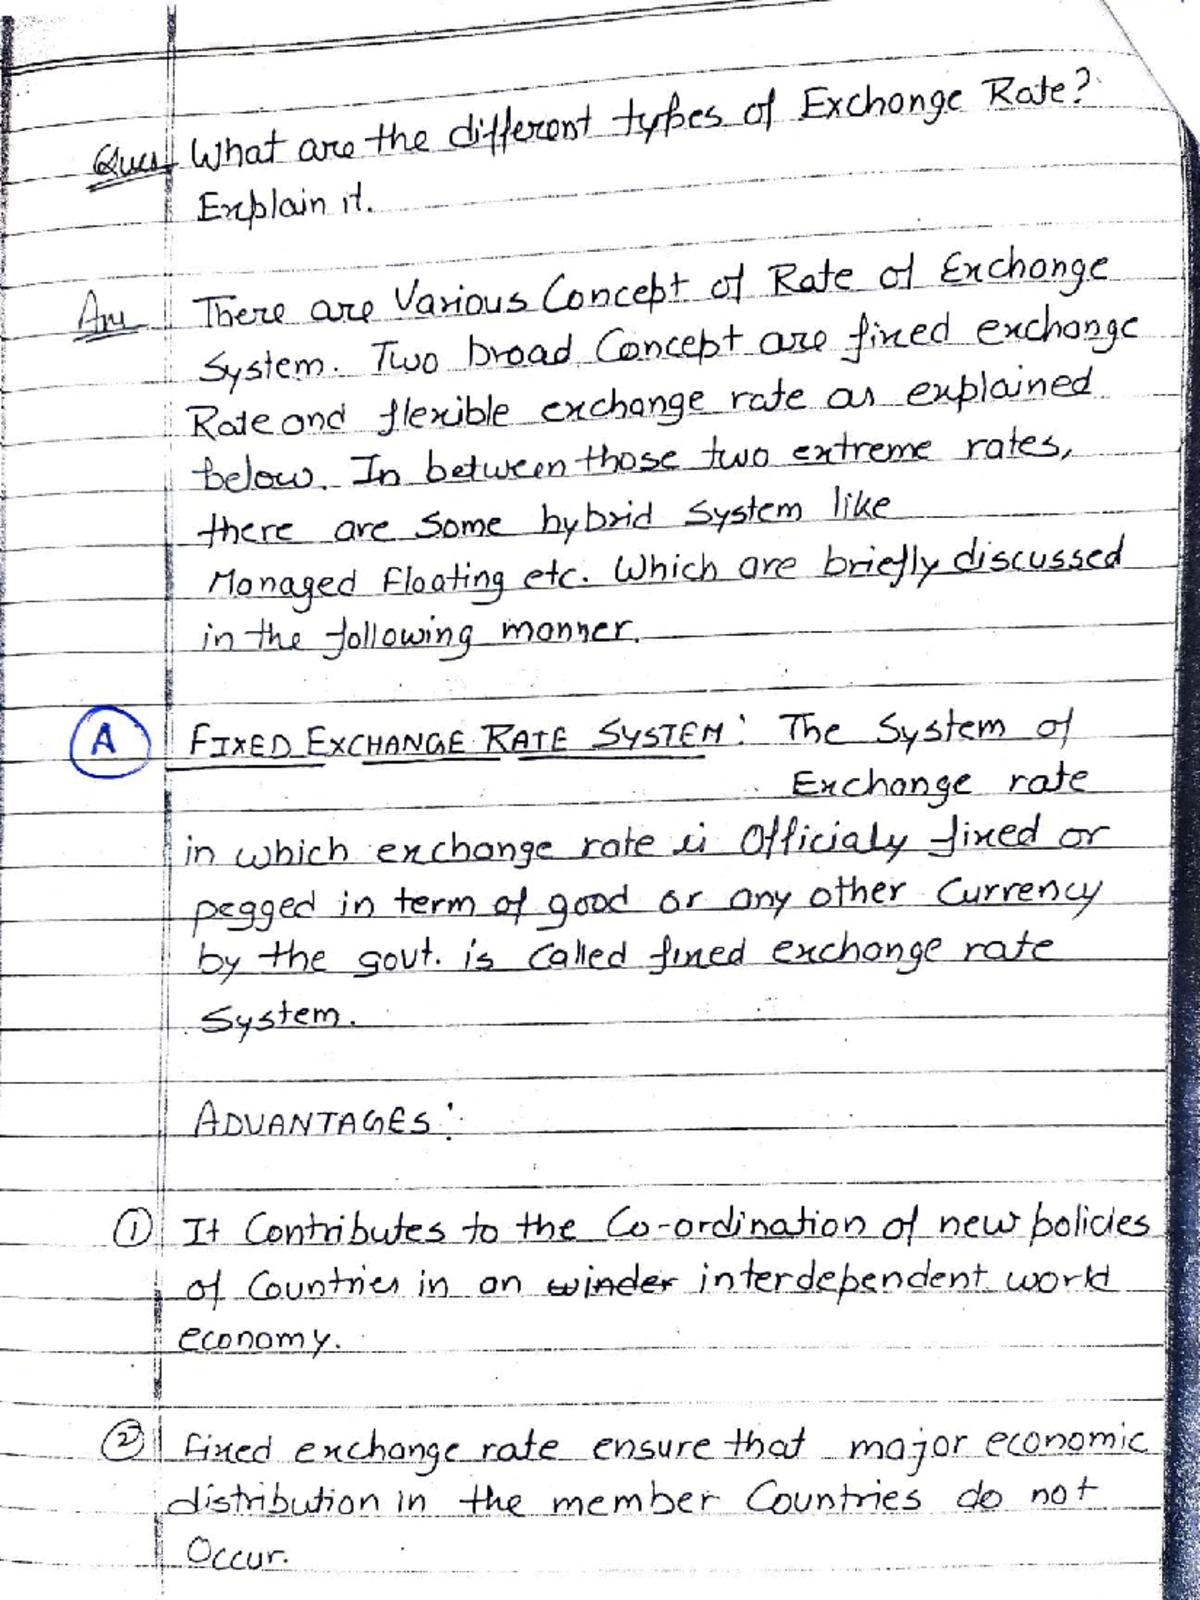 Ques What are the different types of Exchange Rate?
Explain it.
Ans There are Various Concept of Rate of Exchange
System. Two broad Concept are fixed exchange
Rate and flexible exchange rate as explained
below. In between those two extreme rates,
there are some hybrid System like
Managed Floating etc. Which are briefly discussed
in the following manner.
A FIXED EXCHANGE RATE SYSTEM: The System of
Exchange rate
in which exchange rate is Officialy fixed or
pegged in term of good or any other Currency
by the govt. is Called fixed exchange rate
System.
ADVANTAGES:
① It Contributes to the Co-ordination of new policies
of Countries in an winder interdependent world
economy.
② Fixed exchange rate ensure that major economic
distribution in the member Countries do not
Occur.